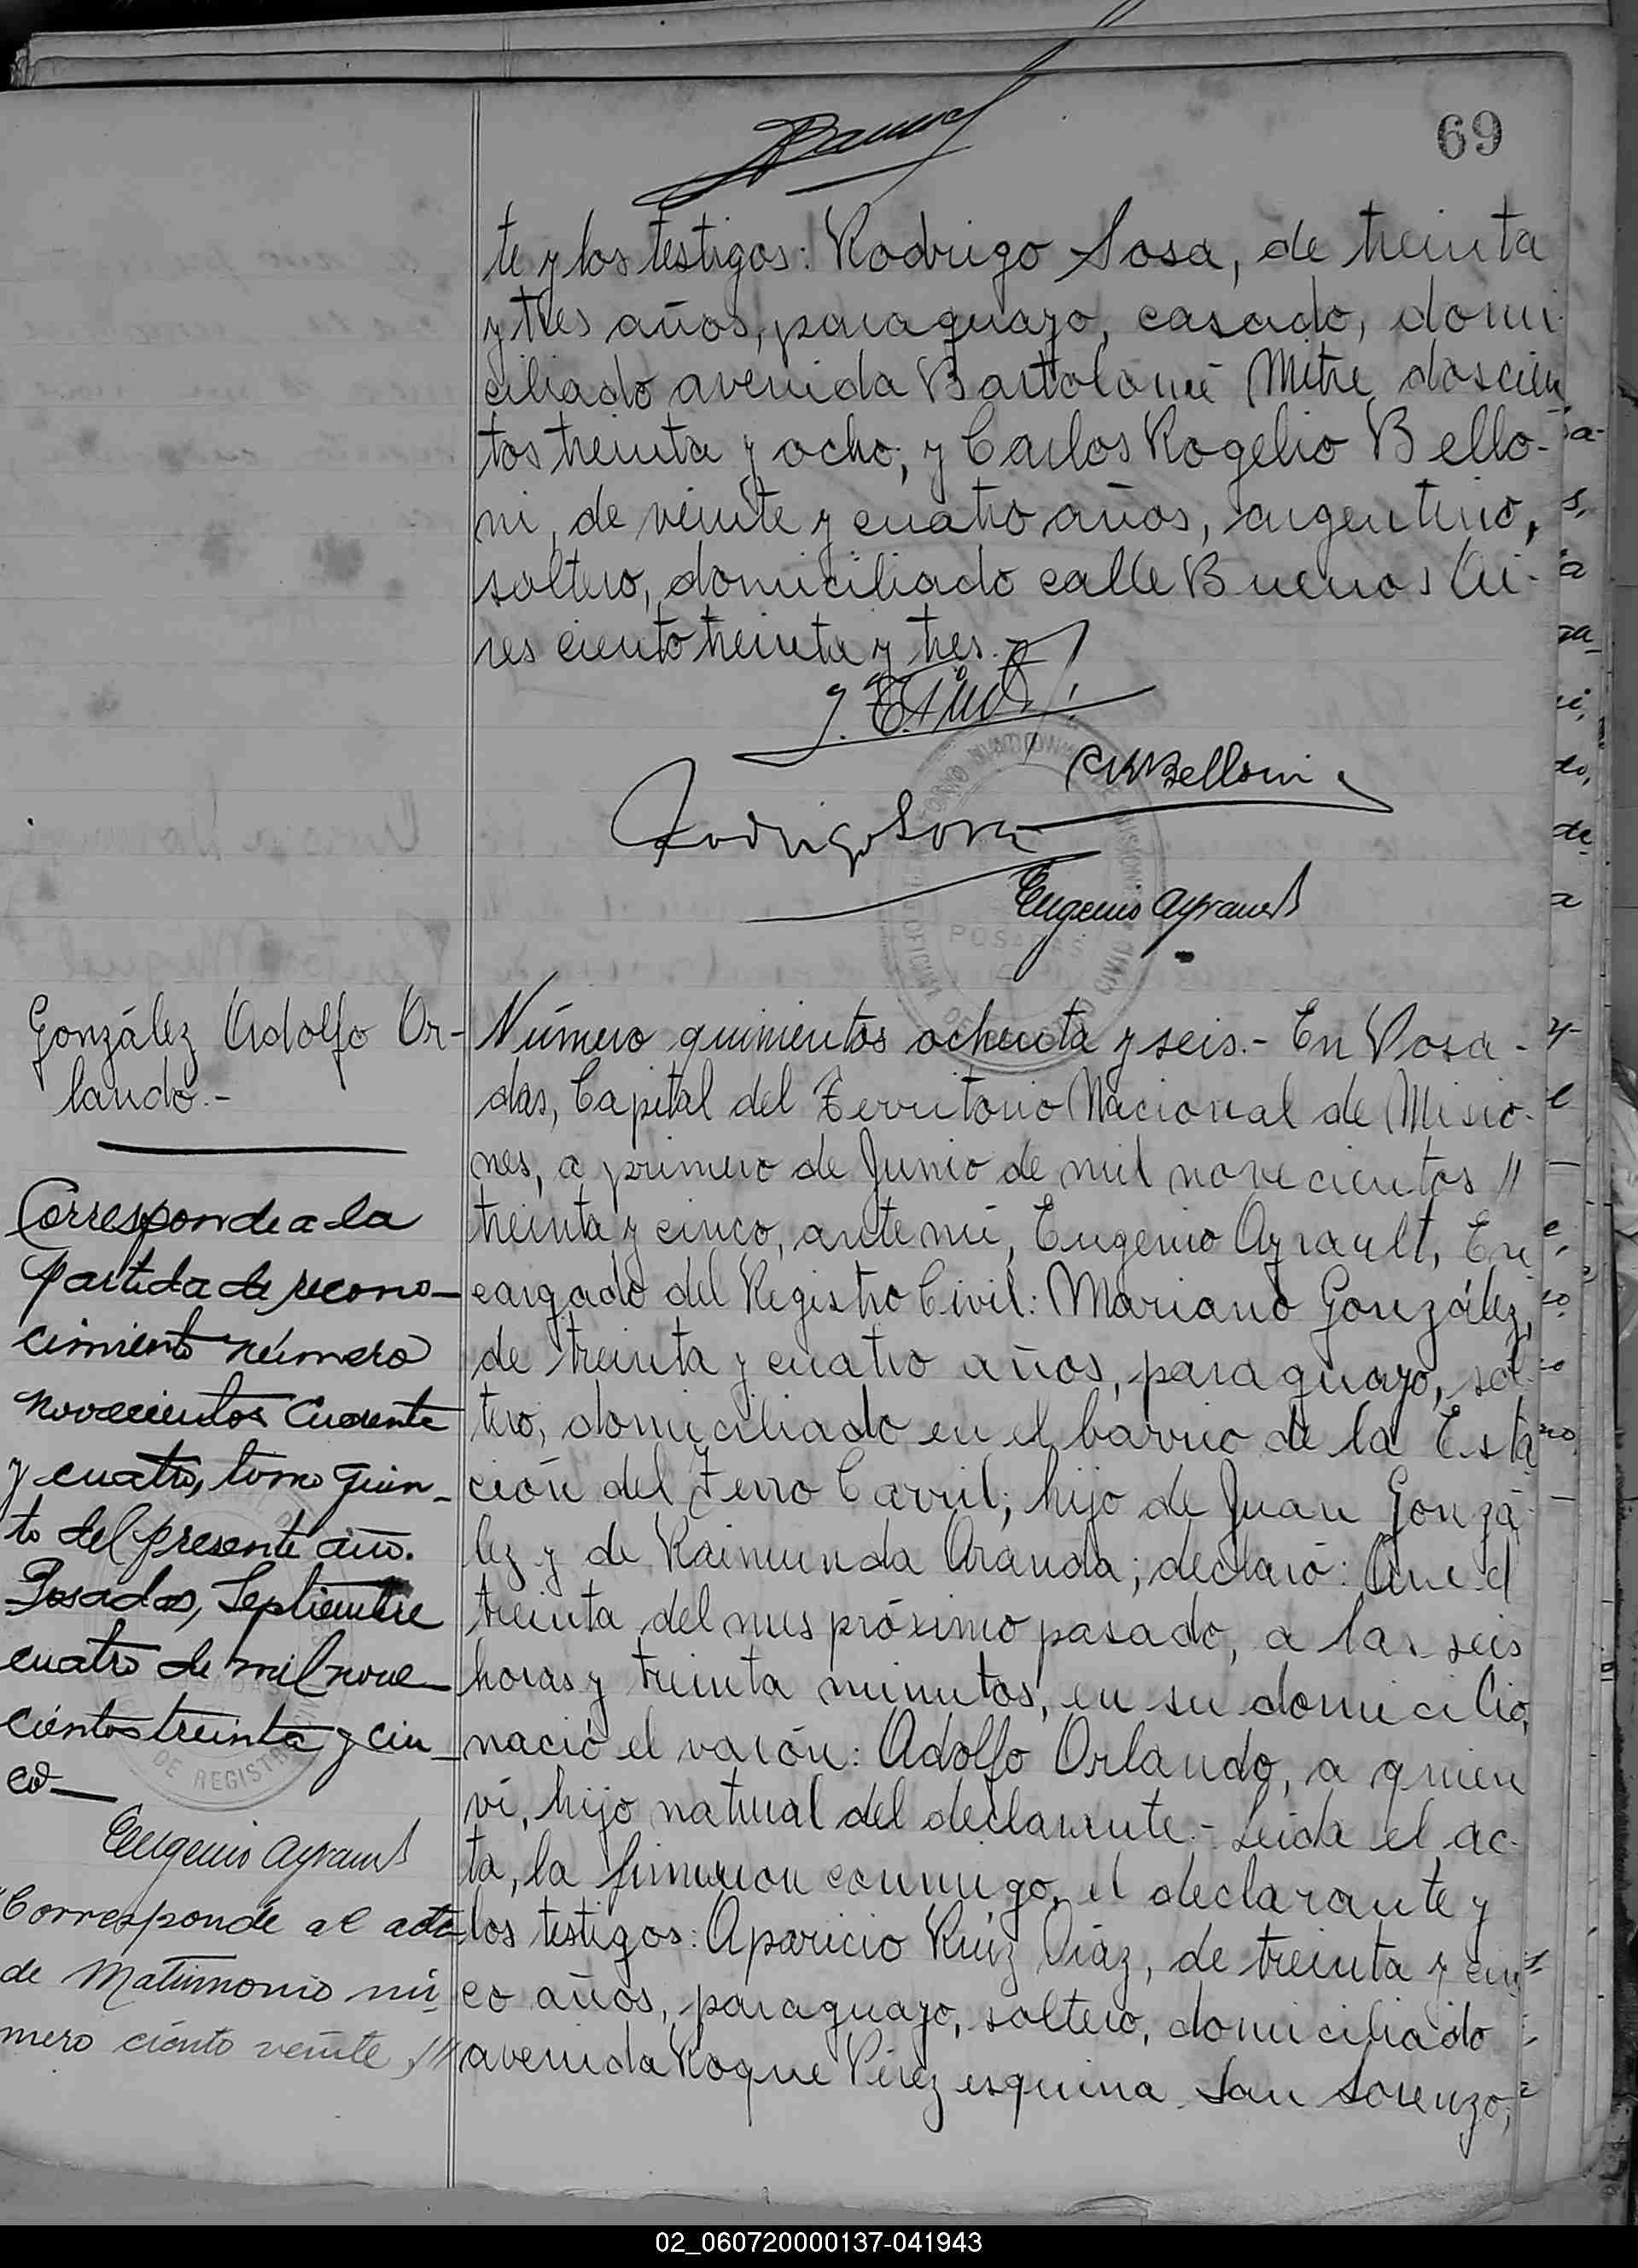 69
te y los testigos: Rodrigo Sosa, de treinta
y tres años, paraguayo, casado, domi-
ciliado avenida Bartolomé Mitre doscien
tos treinta y ocho; y Carlos Rogelio Bello-
ni, de veinte y cuatro años, argentino,
soltero, domiciliado calle Buenos Ai-
res ciento treinta y tres.-
Belloni
Rodrigo Sosa
Eugenio Ayrault
POSADAS
González Adolfo Or-
lando.-
Corresponde a la
partida de recono-
cimiento número
novecientos cuarenta
y cuatro, tomo quin-
to del presente año.
Posadas, Septiembre
cuatro de mil nove-
cientos treinta y cin-
co-
DE REGISTR
Eugenio Ayrault
"Corresponde al acta
de Matrimonio nú-
mero ciento veinte ///
Número quinientos ochenta y seis.- En Posa-
das, Capital del Territorio Nacional de Misio-
nes, a primero de Junio de mil novecientos //
treinta y cinco, ante mí, Eugenio Ayrault, En
cargado del Registro Civil: Mariano González,
de treinta y cuatro años, paraguayo, sol-
tero, domiciliado en el barrio de la Esta
ción del Ferro Carril; hijo de Juan Gonzá-
lez y de Raimunda Aranda; declaró: Que el
treinta del mes próximo pasado, a las seis
horas y treinta minutos, en su domicilio,
nació el varón: Adolfo Orlando, a quien
ví, hijo natural del declarante.- Leída el ac-
ta, la firmaron conmigo, el declarante y
los testigos: Aparicio Ruíz Díaz, de treinta y cin
co años, paraguayo, soltero, domiciliado
avenida Roque Pérez esquina San Lorenzo;
02_060720000137-041943